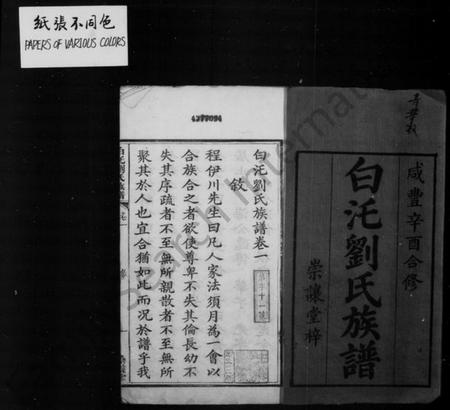 紙張不同色
PAPERS OF VARIOUS COLORS
4277094
咸豐辛酉合修
白汑劉氏族譜
崇讓堂梓
白汑劉氏族譜卷一
敘
程伊川先生曰凡人家法須月為一會以
合族合之者欲使尊卑不失其倫長幼不
失其序疏者不至無所親散者不至無所
聚其於人也宜合猶如此而况於譜乎我